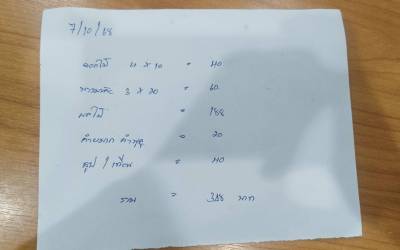 7/10/68
ดอกไม้ 4 x 10 = 40
พวงมาลัย 3 x 20 = 60
ผลไม้ = 188
คำหมาก คำพลู = 20
ธูป / เทียน = 40
รวม = 348 บาท